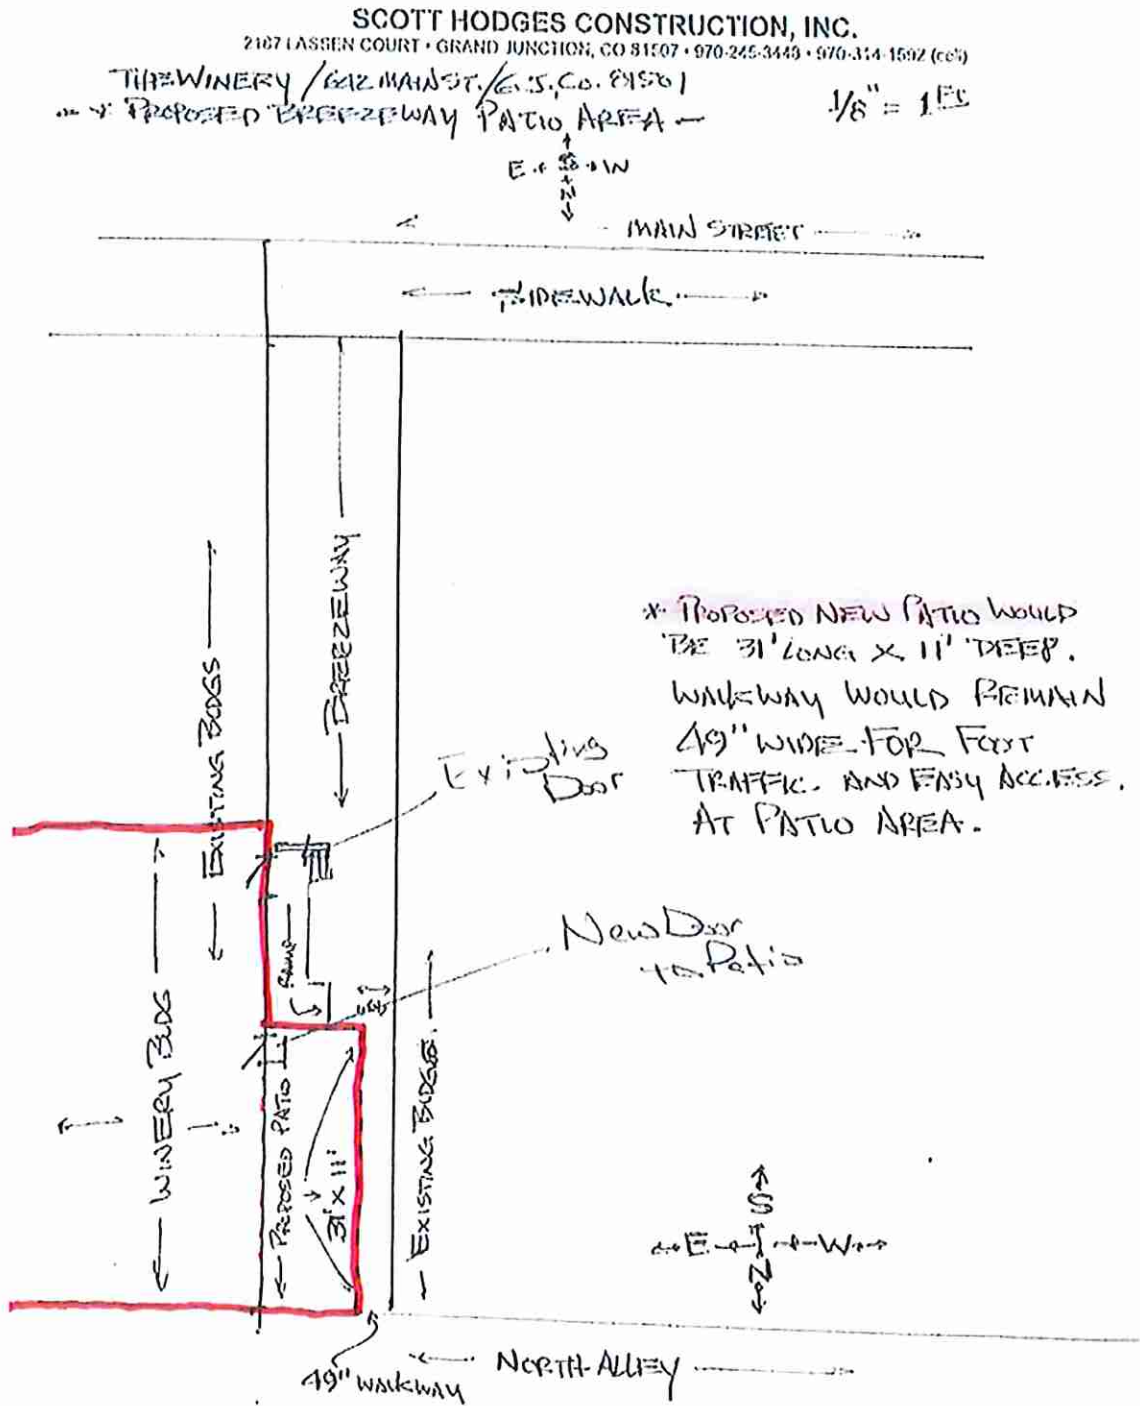 SCOTT HODGES CONSTRUCTION, INC.
2187 LASSEN COURT • GRAND JUNCTION, CO 81507 • 970-245-3443 • 970-314-1592 (cell)
THE WINERY / 642 MAIN ST. / G.J., CO. 81501
* PROPOSED BREEZEWAY PATIO AREA
1/8" = 1 FT
E S W
N
MAIN STREET
SIDEWALK
BREEZEWAY
EXISTING BLDGS
* PROPOSED NEW PATIO WOULD
BE 31' LONG X 11' DEEP.
WALKWAY WOULD REMAIN
49" WIDE FOR FOOT
TRAFFIC. AND EASY ACCESS.
AT PATIO AREA.
Existing
Door
New Door
to Patio
RAMP
WINERY BLDG
PROPOSED PATIO
31' X 11'
EXISTING BLDGS.
S
E W
N
NORTH ALLEY
49" WALKWAY